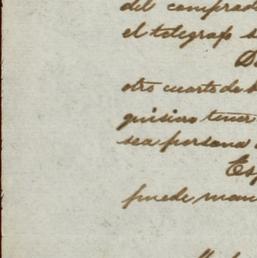 del comprad
el telegrafo s
D
otro cuarto de h
quisiera tener
sea persona
Esp
puede man